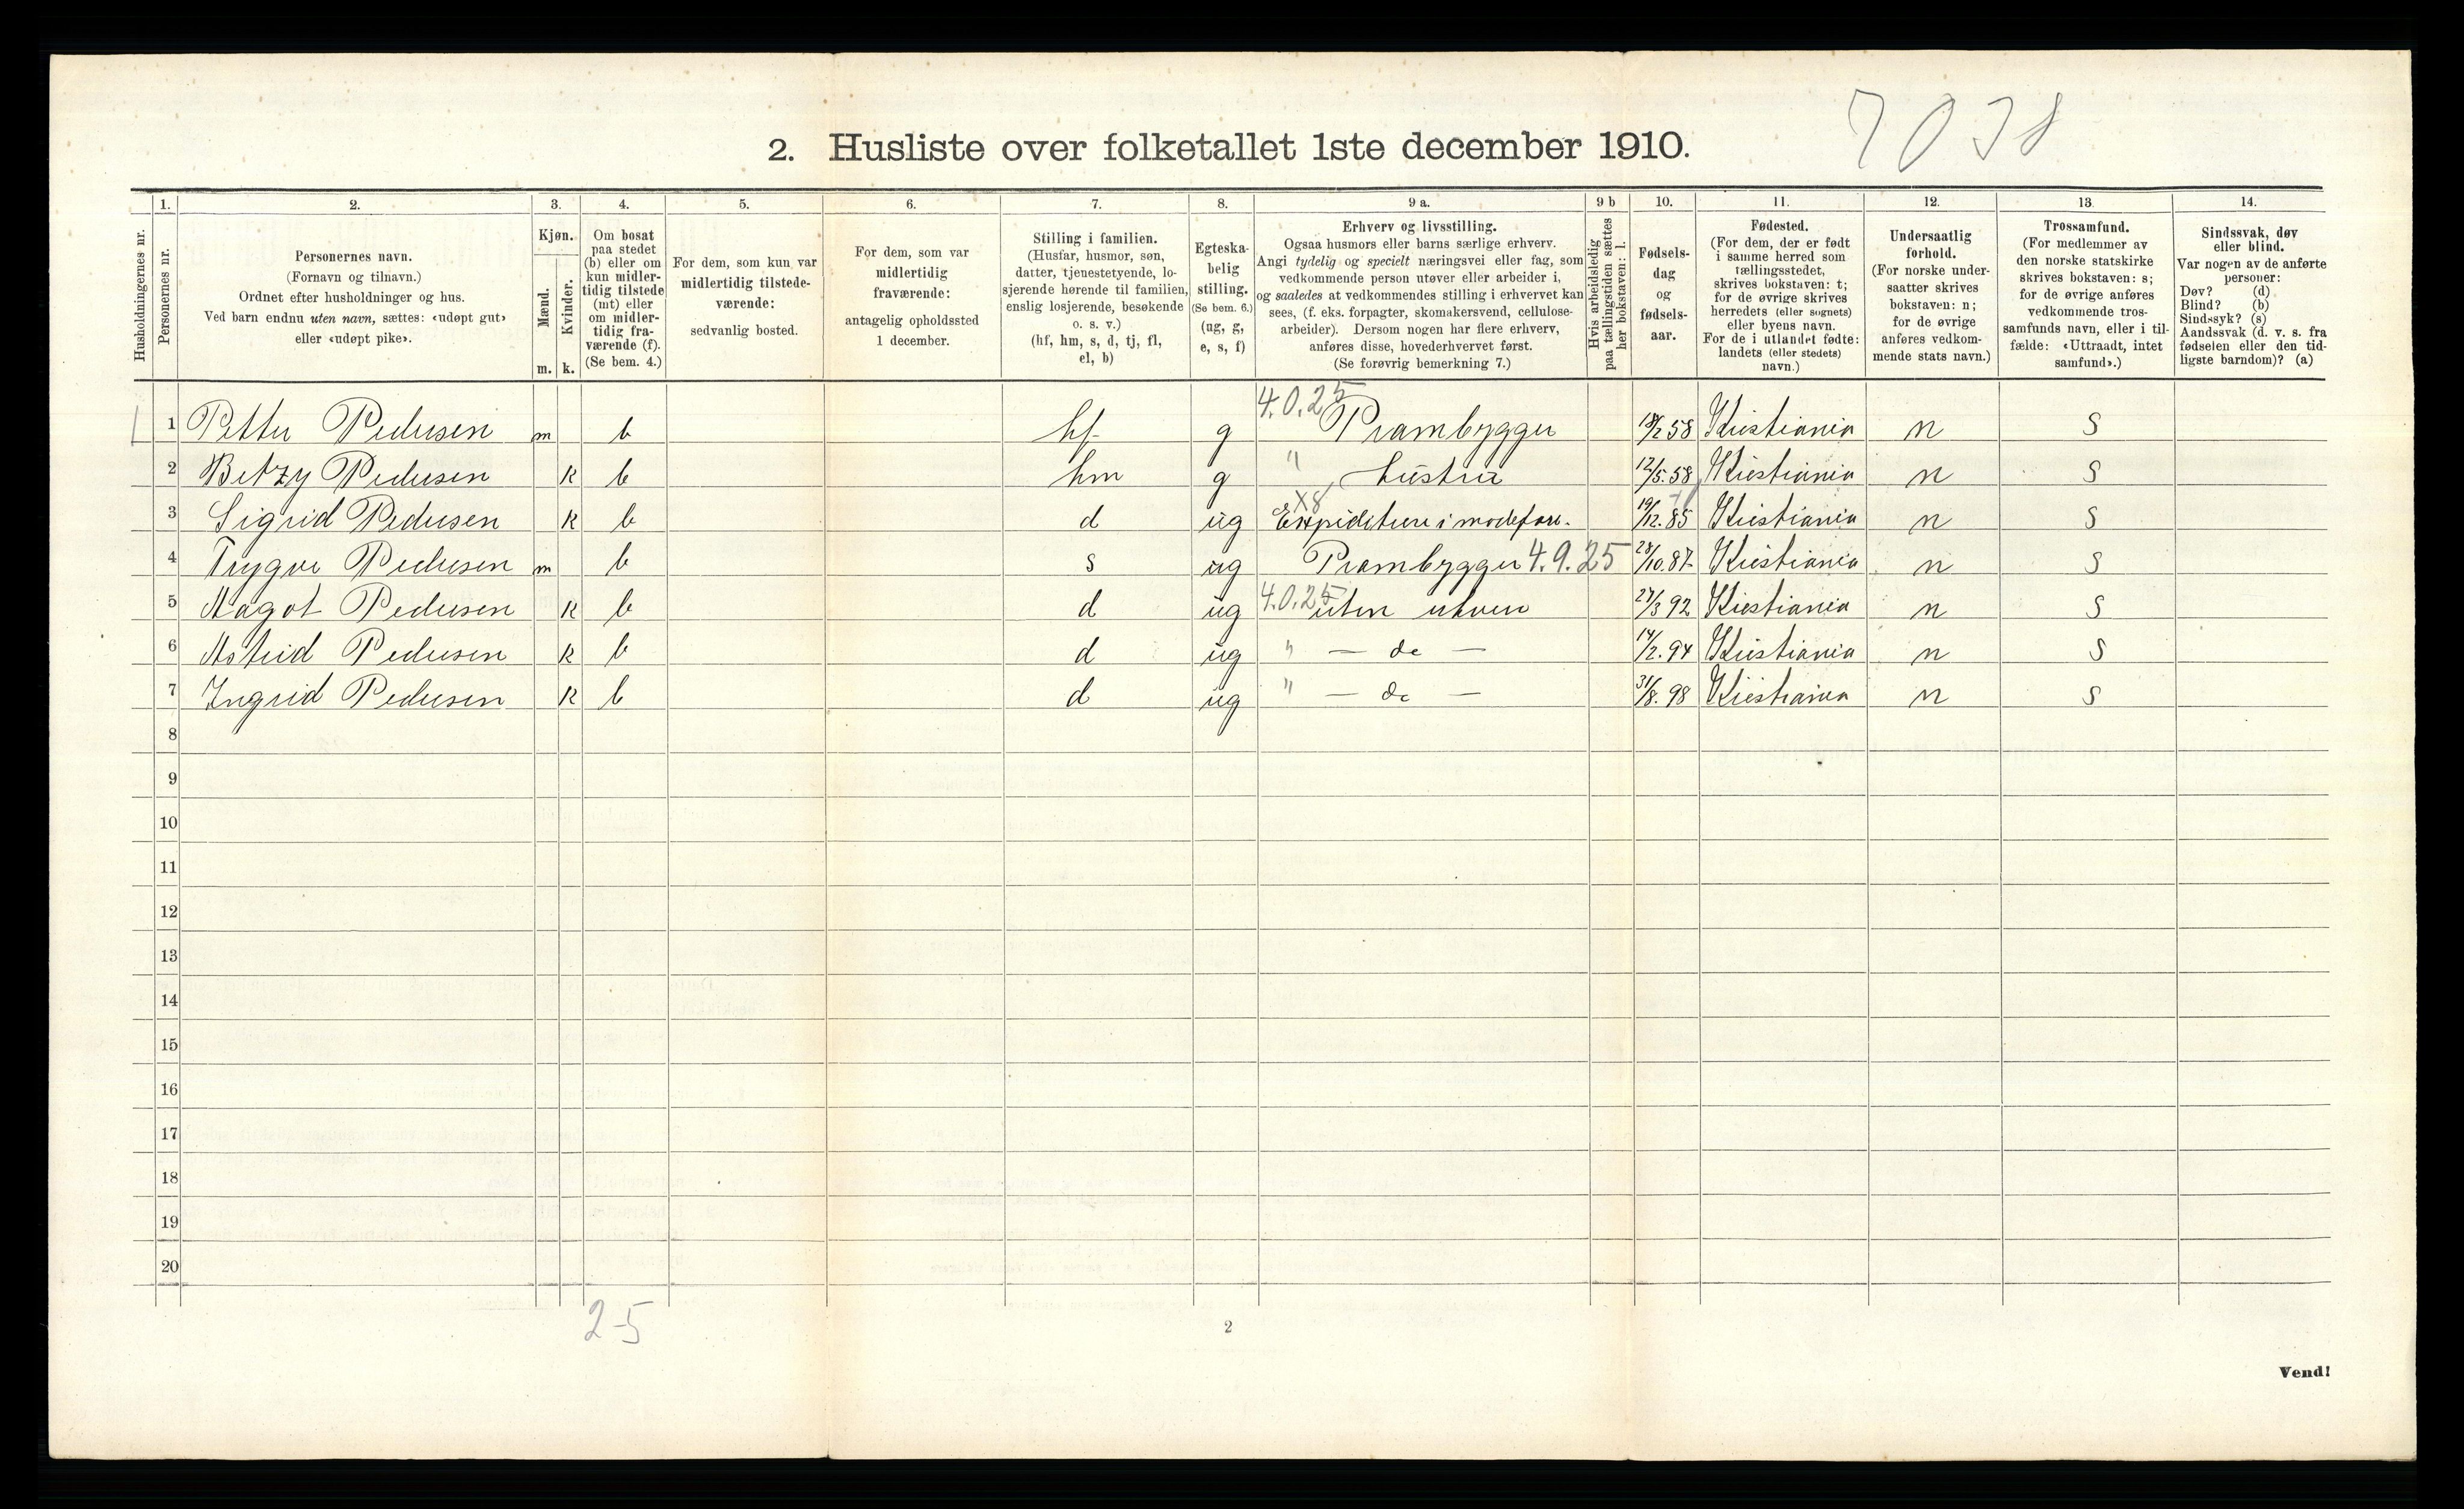 7038
2. Husliste over folketallet 1ste december 1910.
Husholdningernes nr.
1. Personernes nr.
2. Personernes navn.
(Fornavn og tilnavn.)
Ordnet efter husholdninger og hus.
Ved barn endnu uten navn, sættes: «udøpt gut»
eller «udøpt pike».
3. Kjøn.
Mænd. Kvinder.
m. k.
4. Om bosat
paa stedet
(b) eller om
kun midler-
tidig tilstede
(mt) eller
om midler-
tidig fra-
værende (f).
(Se bem. 4.)
5. For dem, som kun var
midlertidig tilstede-
værende:
sedvanlig bosted.
6. For dem, som var
midlertidig
fraværende:
antagelig opholdssted
1 december.
7. Stilling i familien.
(Husfar, husmor, søn,
datter, tjenestetyende, lo-
sjerende hørende til familien,
enslig losjerende, besøkende
o. s. v.)
(hf, hm, s, d, tj, fl,
el, b)
8. Egteska-
belig
stilling.
(Se bem. 6.)
(ug, g,
e, s, f)
9 a. Erhverv og livsstilling.
Ogsaa husmors eller barns særlige erhverv.
Angi tydelig og specielt næringsvei eller fag, som
vedkommende person utøver eller arbeider i,
og saaledes at vedkommendes stilling i erhvervet kan
sees, (f. eks. forpagter, skomakersvend, cellulose-
arbeider). Dersom nogen har flere erhverv,
anføres disse, hovederhvervet først.
(Se forøvrig bemerkning 7.)
9 b Hvis arbeidsledig
paa tællingstiden sættes
her bokstaven: l.
10. Fødsels-
dag
og
fødsels-
aar.
11. Fødested.
(For dem, der er født
i samme herred som
tællingsstedet,
skrives bokstaven: t;
for de øvrige skrives
herredets (eller sognets)
eller byens navn.
For de i utlandet fødte:
landets (eller stedets)
navn.)
12. Undersaatlig
forhold.
(For norske under-
saatter skrives
bokstaven: n;
for de øvrige
anføres vedkom-
mende stats navn.)
13. Trossamfund.
(For medlemmer av
den norske statskirke
skrives bokstaven: s;
for de øvrige anføres
vedkommende tros-
samfunds navn, eller i til-
fælde: «Uttraadt, intet
samfund».)
14. Sindssvak, døv
eller blind.
Var nogen av de anførte
personer:
Døv? (d)
Blind? (b)
Sindssyk? (s)
Aandssvak (d. v. s. fra
fødselen eller den tid-
ligste barndom)? (a)
4.0.25
1 1 Petter Pedersen m b hf g Prambygger 18/2 58 Kristiania n s
2 Betzy Pedersen k b hm g " hustru 12/5.58 Kristiania n s
X8
3 Sigrid Pedersen k b d ug Expiditrise i modeforr. 19/12.85 Kristiania n s
4 Trygve Pedersen m b s ug Prambygger 4.9.25 28/10.87 Kristiania n s
5 Aagot Pedersen k b d ug 4.0.25 uten erhverv 27/3 92 Kristiania n s
6 Astrid Pedersen k b d ug " — do — 14/2.94 Kristiania n s
7 Ingrid Pedersen k b d ug " — do — 31/8.98 Kristiania n s
8
9
10
11
12
13
14
15
16
17
18
19
20
2-5
2
Vend!